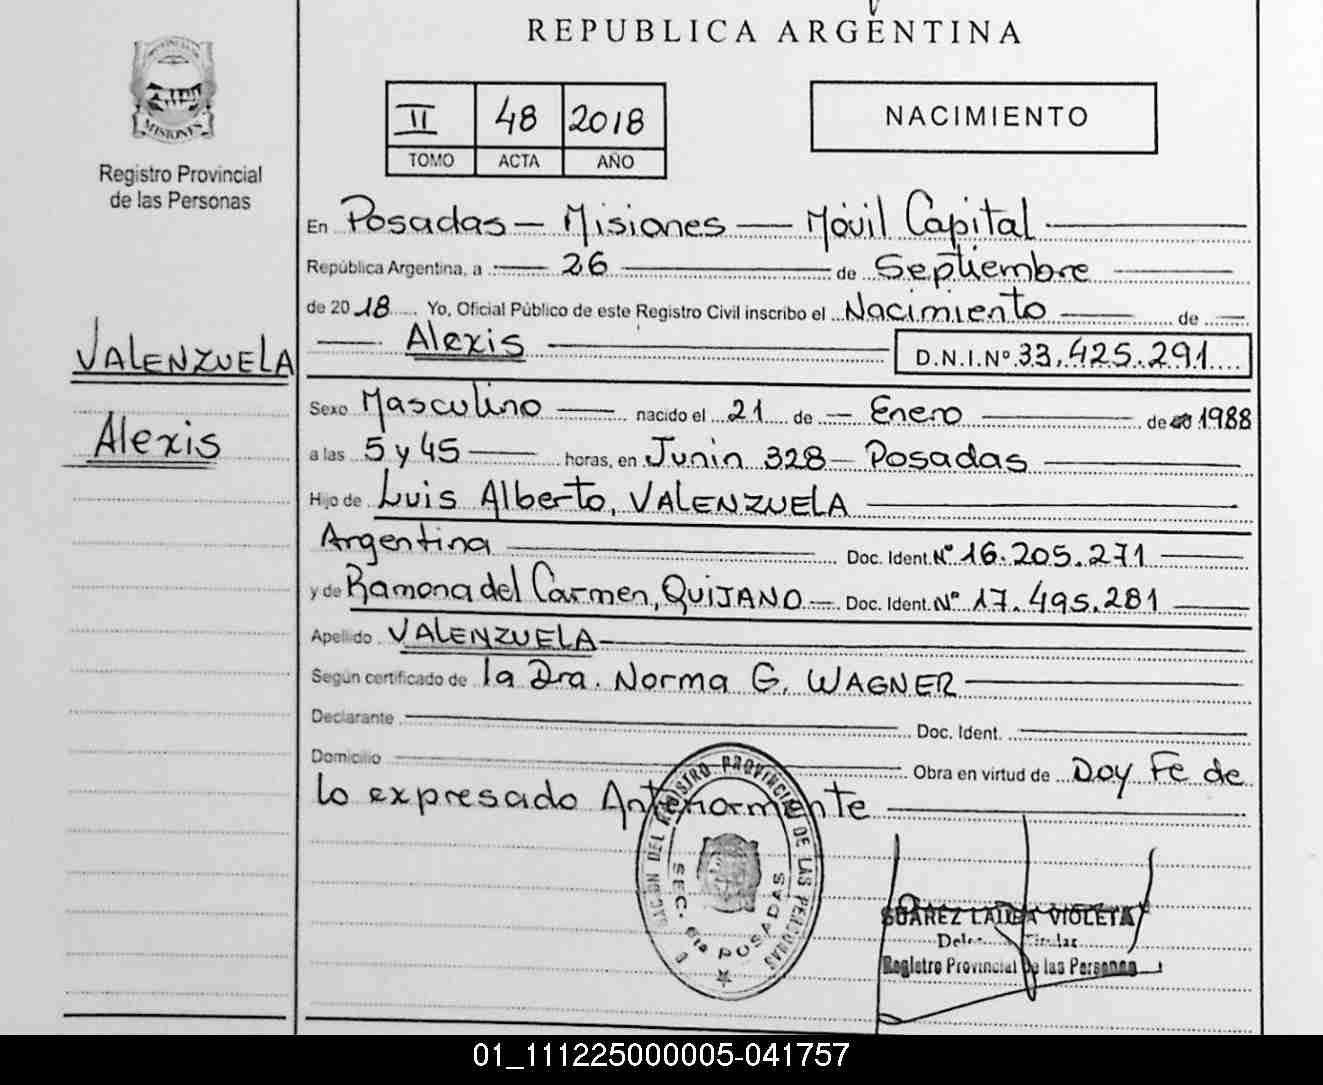 REPUBLICA ARGENTINA
MISIONES
Registro Provincial
de las Personas
II 48 2018
TOMO ACTA AÑO
NACIMIENTO
VALENZUELA
Alexis
En Posadas — Misiones — Móvil Capital
República Argentina, a 26 de Septiembre
de 2018 Yo, Oficial Público de este Registro Civil inscribo el Nacimiento de
Alexis D.N.I.Nº 33.425.291
Sexo Masculino nacido el 21 de Enero de 1988
a las 5 y 45 horas, en Junin 328 — Posadas
Hijo de Luis Alberto, VALENZUELA
Argentina Doc. Ident. Nº 16.205.271
y de Ramona del Carmen, QUIJANO Doc. Ident. Nº 17.495.281
Apellido VALENZUELA
Según certificado de la Dra. Norma G. WAGNER
Declarante Doc. Ident.
Domicilio Obra en virtud de Doy Fe de
lo expresado Anteriormente
DEL REGISTRO PROVINCIAL DE LAS PERSONAS
SEC. 6ta POSADAS
SUAREZ LAURA VIOLETA
Titular
Registro Provincial de las Personas
01_111225000005-041757